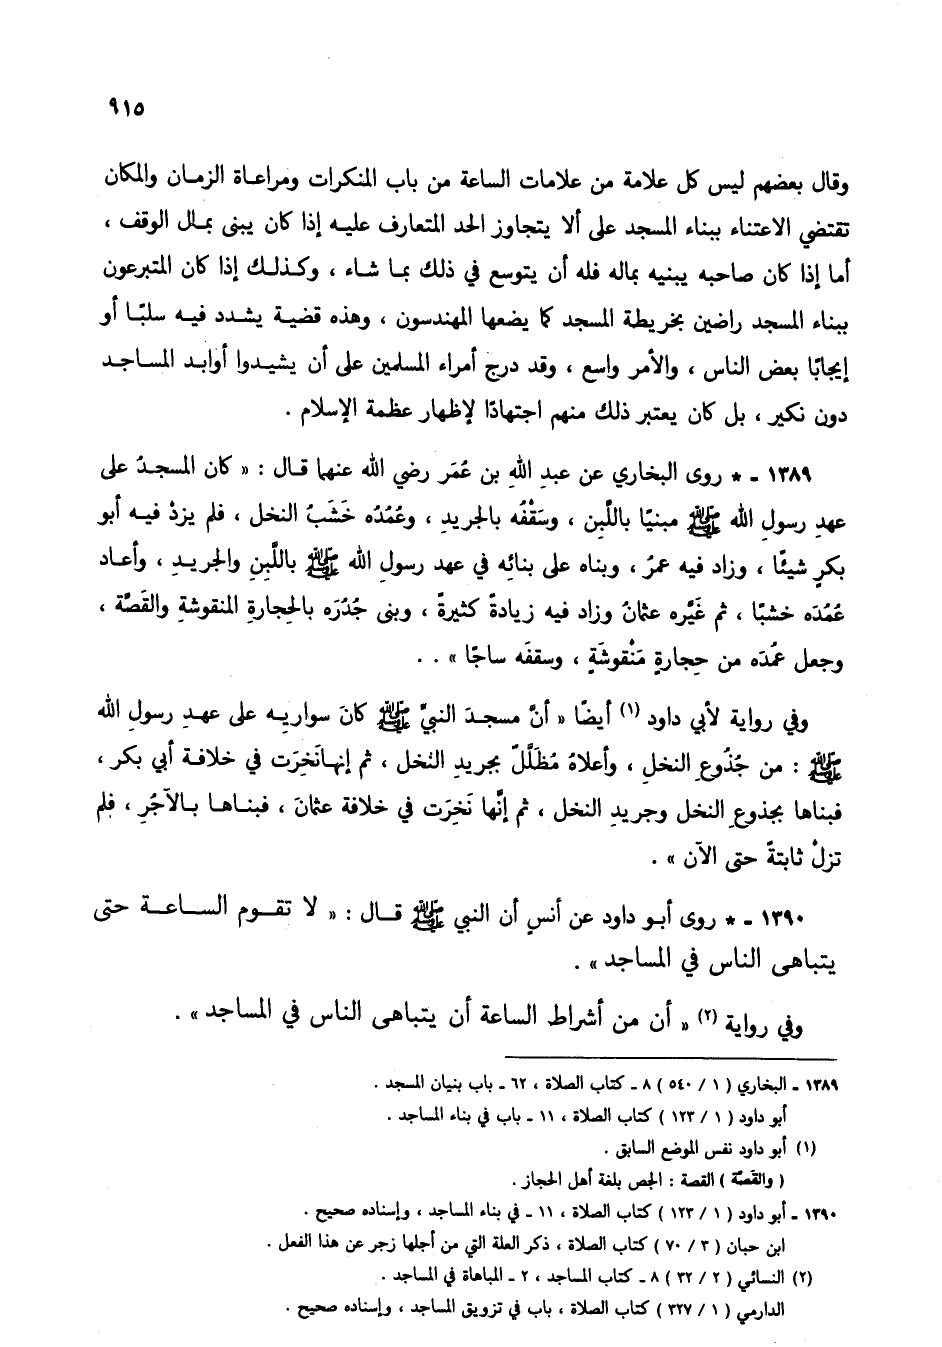 ٩١٥
وقال بعضهم ليس كل علامة من علامات الساعة من باب المنكرات ومراعاة الزمان والمكان
تقتضي الاعتناء ببناء المسجد على ألا يتجاوز الحد المتعارف عليه إذا كان يبنى بمال الوقف ،
أما إذا كان صاحبه يبنيه بماله فله أن يتوسع في ذلك بما شاء ، وكذلك إذا كان المتبرعون
ببناء المسجد راضين بخريطة المسجد كما يضعها المهندسون ، وهذه قضية يشدد فيه سلبًا أو
إيجابًا بعض الناس ، والأمر واسع ، وقد درج أمراء المسلمين على أن يشيدوا أوابد المساجد
دون نكير ، بل كان يعتبر ذلك منهم اجتهادًا لإظهار عظمة الإسلام .
١٣٨٩ - * روى البخاري عن عبدِ اللهِ بن عُمَر رضي الله عنهما قال : « كان المسجدُ على
عهدِ رسولِ الله ﷺ مبنيًا باللَّبِن ، وسَقْفُه بالجريدِ ، وعُمُدُه خَشَبُ النخل ، فلم يزدْ فيه أبو
بكرٍ شيئًا ، وزاد فيه عمرُ ، وبناه على بنائِه في عهد رسولِ الله ﷺ باللَّبِنِ والجريدِ ، وأعاد
عُمُدَه خشبًا ، ثم غَيَّره عثمانُ وزاد فيه زيادةً كثيرةً ، وبنى جُدُرَه بالحِجارةِ المنقوشةِ والقَصَّة ،
وجعل عمُدَه من حِجارةٍ مَنْقوشَةٍ ، وسقفَه ساجًا » . .
وفي رواية لأبي داود (١) أيضًا « أنّ مسجدَ النبيِّ ﷺ كانَ سواريه على عهدِ رسولِ الله
ﷺ : من جُذُوعِ النخلِ ، وأعلاهُ مُظَلَّلٌ بجريدِ النخل ، ثم إنها نَخِرَت في خلافة أبي بكر ،
فبناها بجذوعِ النخل وجريدِ النخل ، ثم إنَّها نَخِرَت في خلافة عثمانَ ، فبناها بالآجُرِ ، فلم
تزلْ ثابتةً حتى الآن » .
١٣٩٠ - * روى أبو داود عن أنسٍ أن النبي ﷺ قال : « لا تقوم الساعة حتى
يتباهى الناس في المساجد » .
وفي رواية (٢) « أن من أشراط الساعة أن يتباهى الناس في المساجد » .
١٣٨٩ - البخاري ( ١ / ٥٤٠ ) ٨ - كتاب الصلاة ، ٦٢ - باب بنيان المسجد .
أبو داود ( ١ / ١٢٣ ) كتاب الصلاة ، ١١ - باب في بناء المساجد .
(١) أبو داود نفس الموضع السابق .
( والقَصَّة ) القصة : الجص بلغة أهل الحجاز .
١٣٩٠ - أبو داود ( ١ / ١٢٣ ) كتاب الصلاة ، ١١ - في بناء المساجد ، وإسناده صحيح .
ابن حبان ( ٣ / ٧٠ ) كتاب الصلاة ، ذكر العلة التي من أجلها زجر عن هذا الفعل .
(٢) النسائي ( ٢ / ٣٢ ) ٨ - كتاب المساجد ، ٢ - المباهاة في المساجد .
الدارمي ( ١ / ٣٢٧ ) كتاب الصلاة ، باب في تزويق المساجد ، وإسناده صحيح .